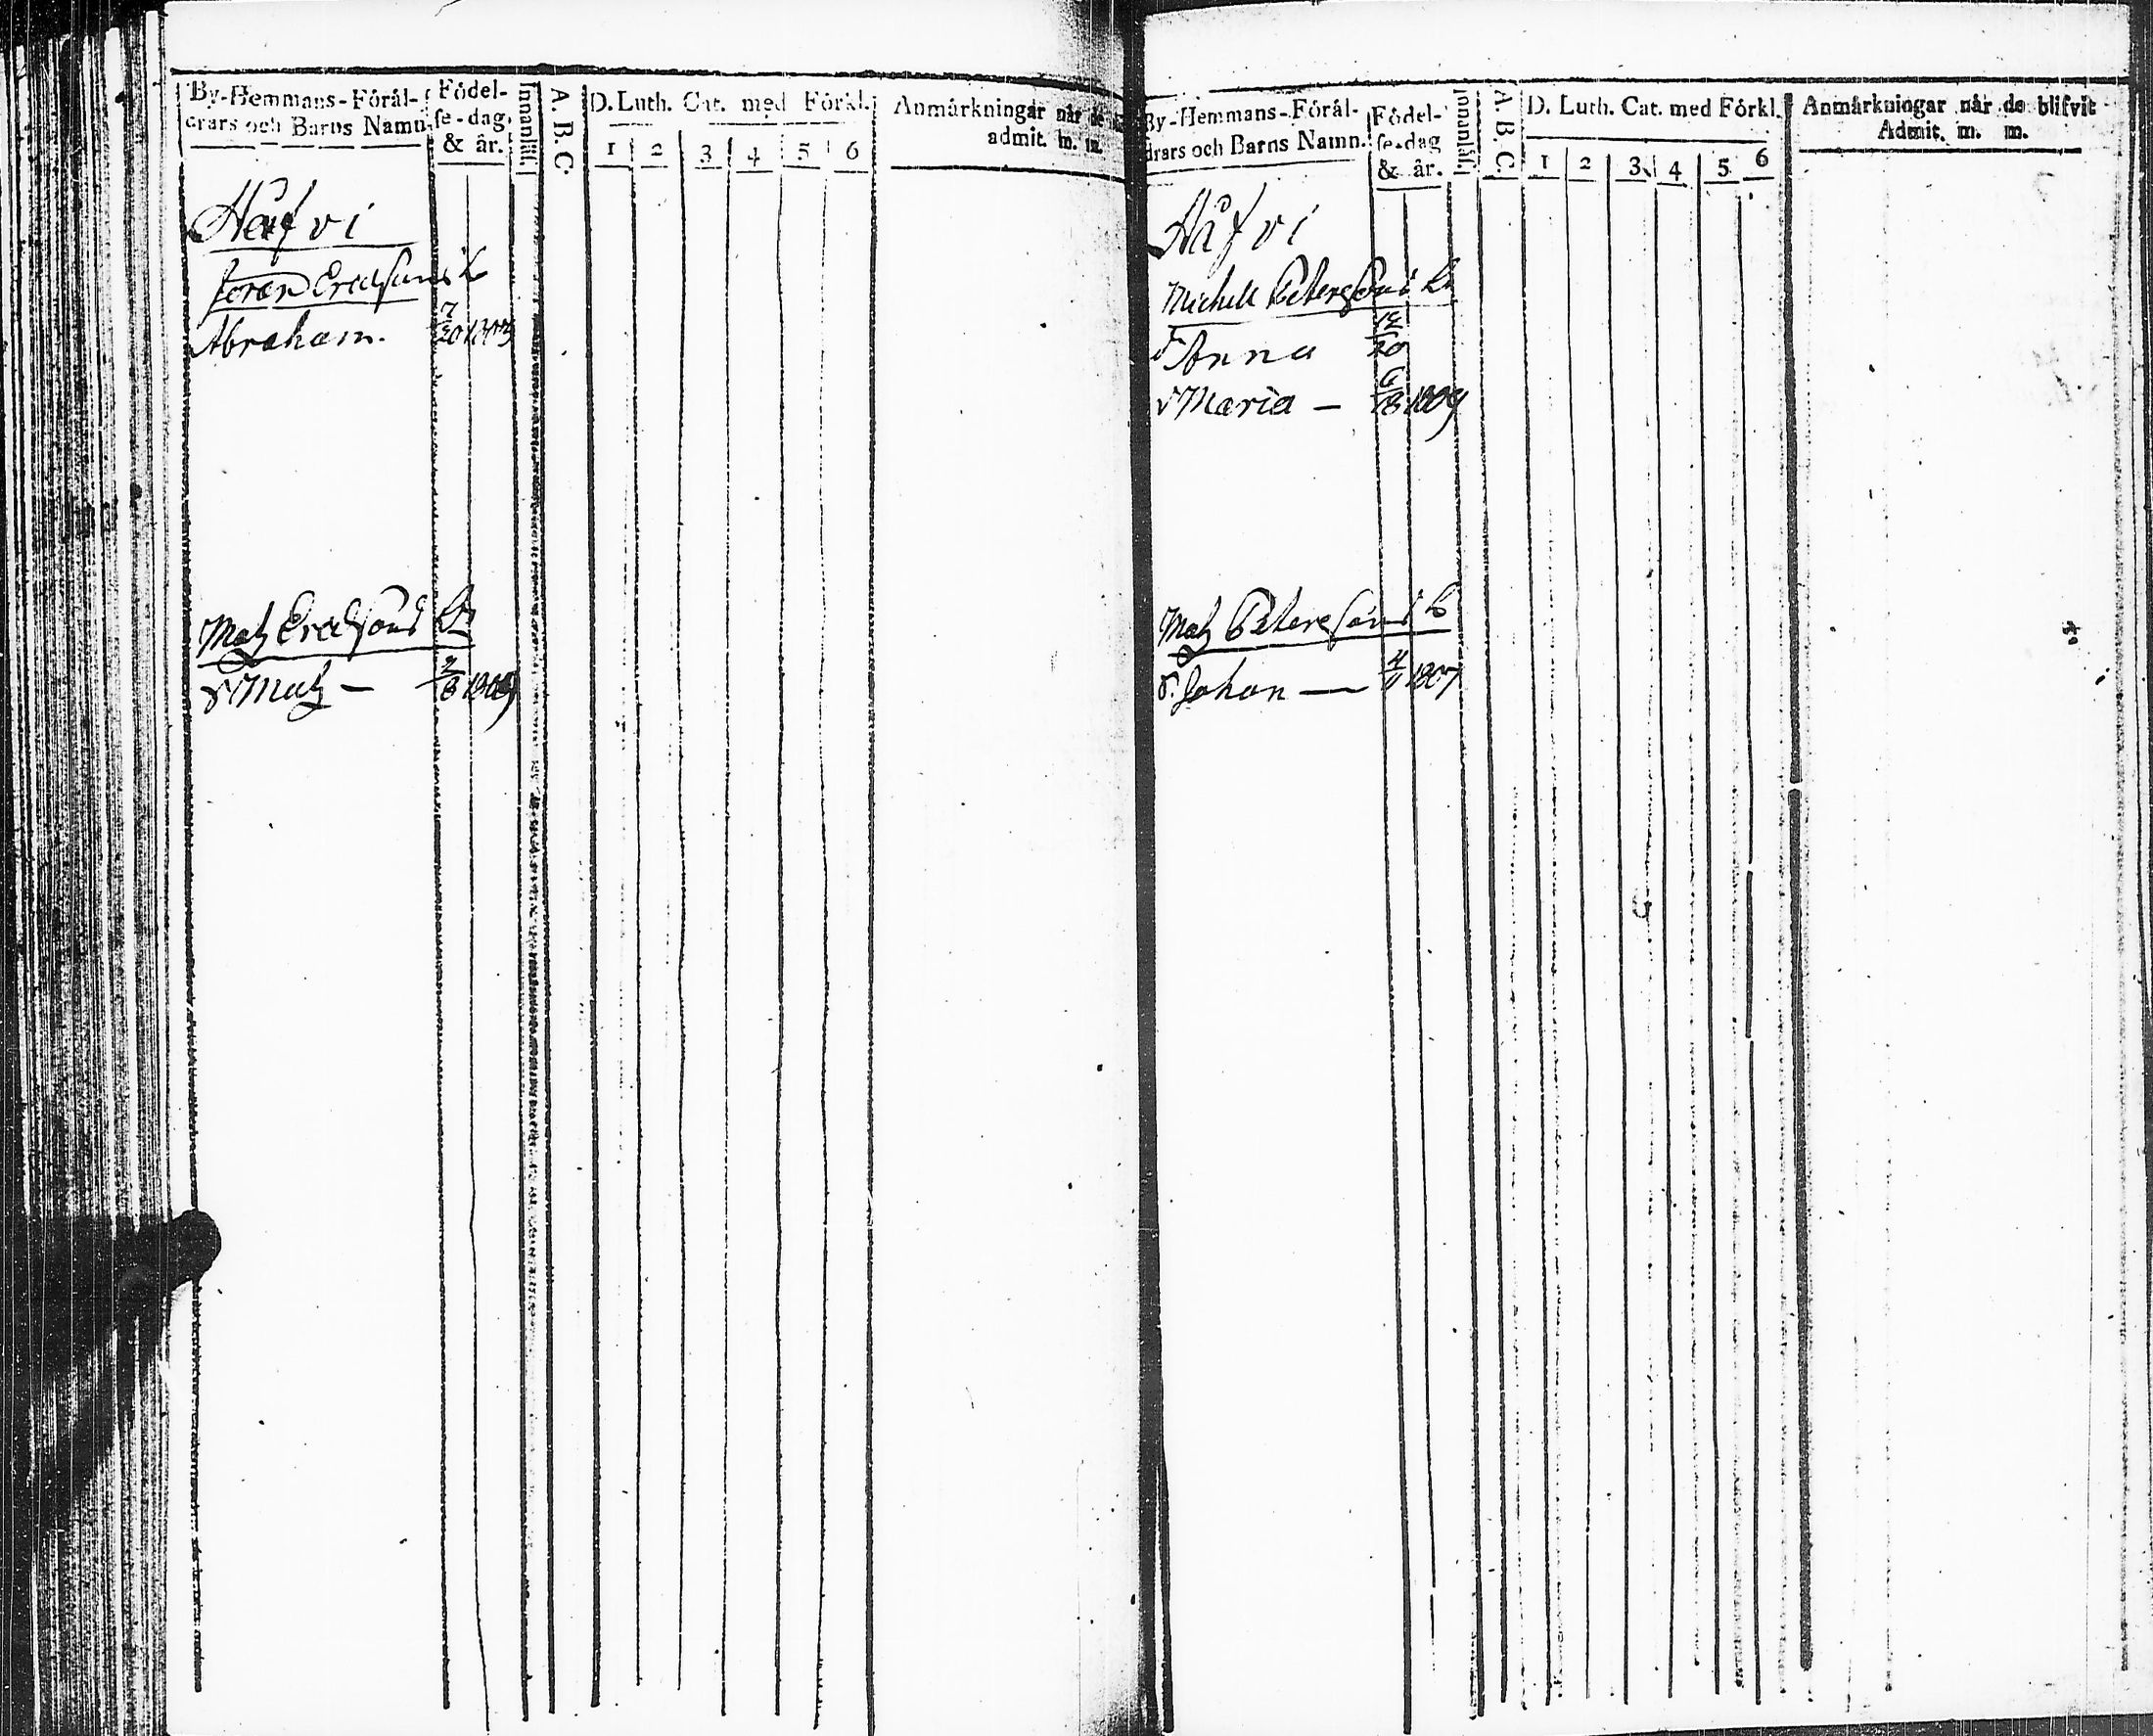 By-Hemmans-Förål-
drars och Barns Namn.
Födel-
se-dag
& år.
Innanläs.
A. B. C.
D. Luth. Cat. med Förkl.
1 2 3 4 5 6
Anmårkningar når de
admit. m. m.
Håfvi
Jöran Ericksons
Abraham.
Matz Ericksons
Matz —
By-Hemmans-Förål-
drars och Barns Namn.
Födel-
se-dag
& år.
Innanläs.
A. B. C.
D. Luth. Cat. med Förkl.
1 2 3 4 5 6
Anmårkningar når de blifvit
Admit. m. m.
Håfvi
Michell Petersons
Anna 12/20
Maria — 6/18 1809
Matz Petersons
Johan — 1807